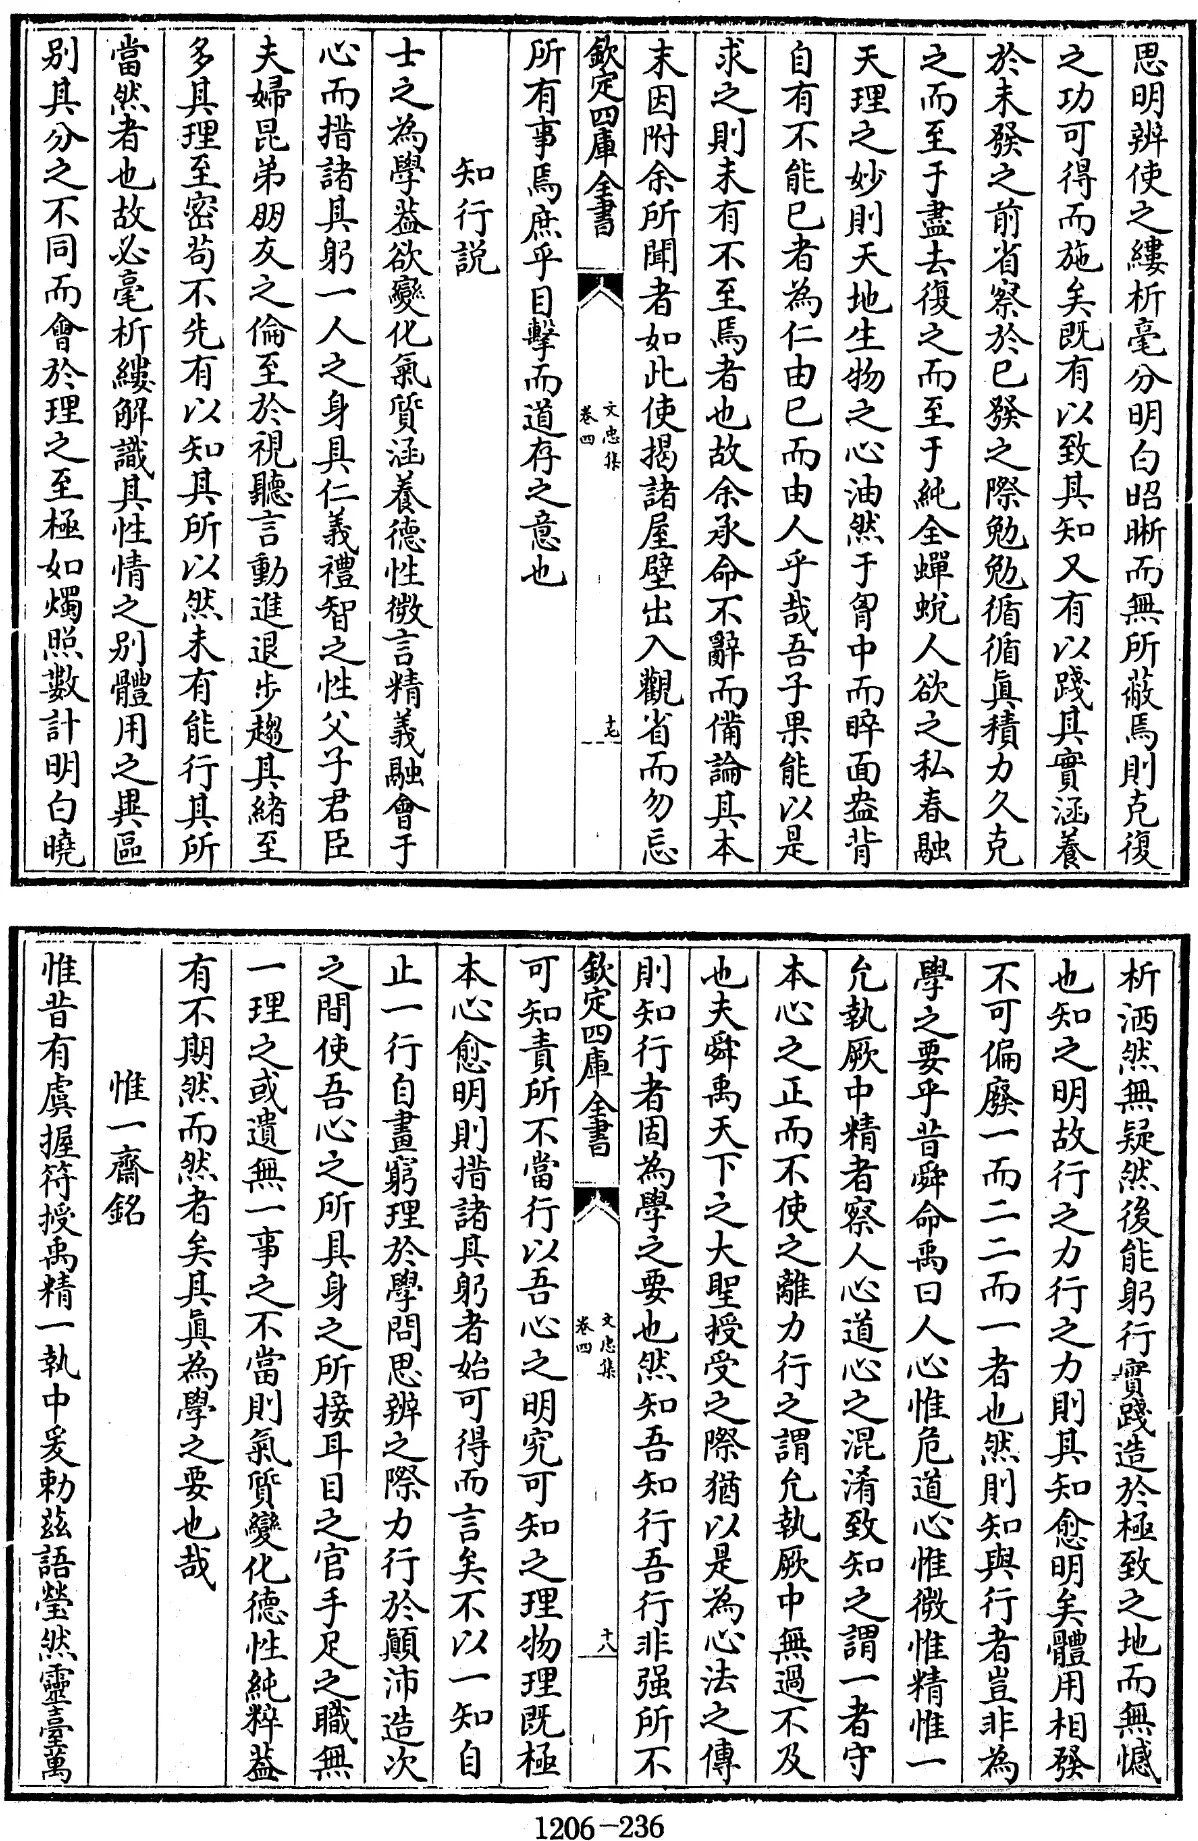 思明辨使之縷析毫分明白昭晰而無所蔽焉則克復
之功可得而施矣既有以致其知又有以踐其實涵養
於未發之前省察於已發之際勉勉循循眞積力久克
之而至于盡去復之而至于純全蟬蛻人欲之私春融
天理之妙則天地生物之心油然于胷中而睟面盎背
自有不能已者為仁由已而由人乎哉吾子果能以是
求之則未有不至焉者也故余承命不辭而備論其本
末因附余所聞者如此使揭諸屋壁出入觀省而勿忘
欽定四庫全書
文忠集
卷四
十七
所有事焉庶乎目擊而道存之意也
知行説
士之為學葢欲變化氣質涵養德性微言精義融會于
心而措諸其躬一人之身具仁義禮智之性父子君臣
夫婦昆弟朋友之倫至於視聽言動進退步趨其緒至
多其理至密苟不先有以知其所以然未有能行其所
當然者也故必毫析縷解識其性情之别體用之異區
别其分之不同而會於理之至極如燭照數計明白曉
析洒然無疑然後能躬行實踐造於極致之地而無憾
也知之明故行之力行之力則其知愈明矣體用相發
不可偏廢一而二二而一者也然則知與行者豈非為
學之要乎昔舜命禹曰人心惟危道心惟微惟精惟一
允執厥中精者察人心道心之混淆致知之謂一者守
本心之正而不使之離力行之謂允執厥中無過不及
也夫舜禹天下之大聖授受之際猶以是為心法之傳
則知行者固為學之要也然知吾知行吾行非强所不
欽定四庫全書
文忠集
卷四
十八
可知責所不當行以吾心之明究可知之理物理既極
本心愈明則措諸其躬者始可得而言矣不以一知自
止一行自畫窮理於學問思辨之際力行於顛沛造次
之間使吾心之所具身之所接耳目之官手足之職無
一理之或遺無一事之不當則氣質變化德性純粹葢
有不期然而然者矣其眞為學之要也哉
惟一齋銘
惟昔有虞握符授禹精一執中爰勅兹語瑩然靈臺萬
1206－236